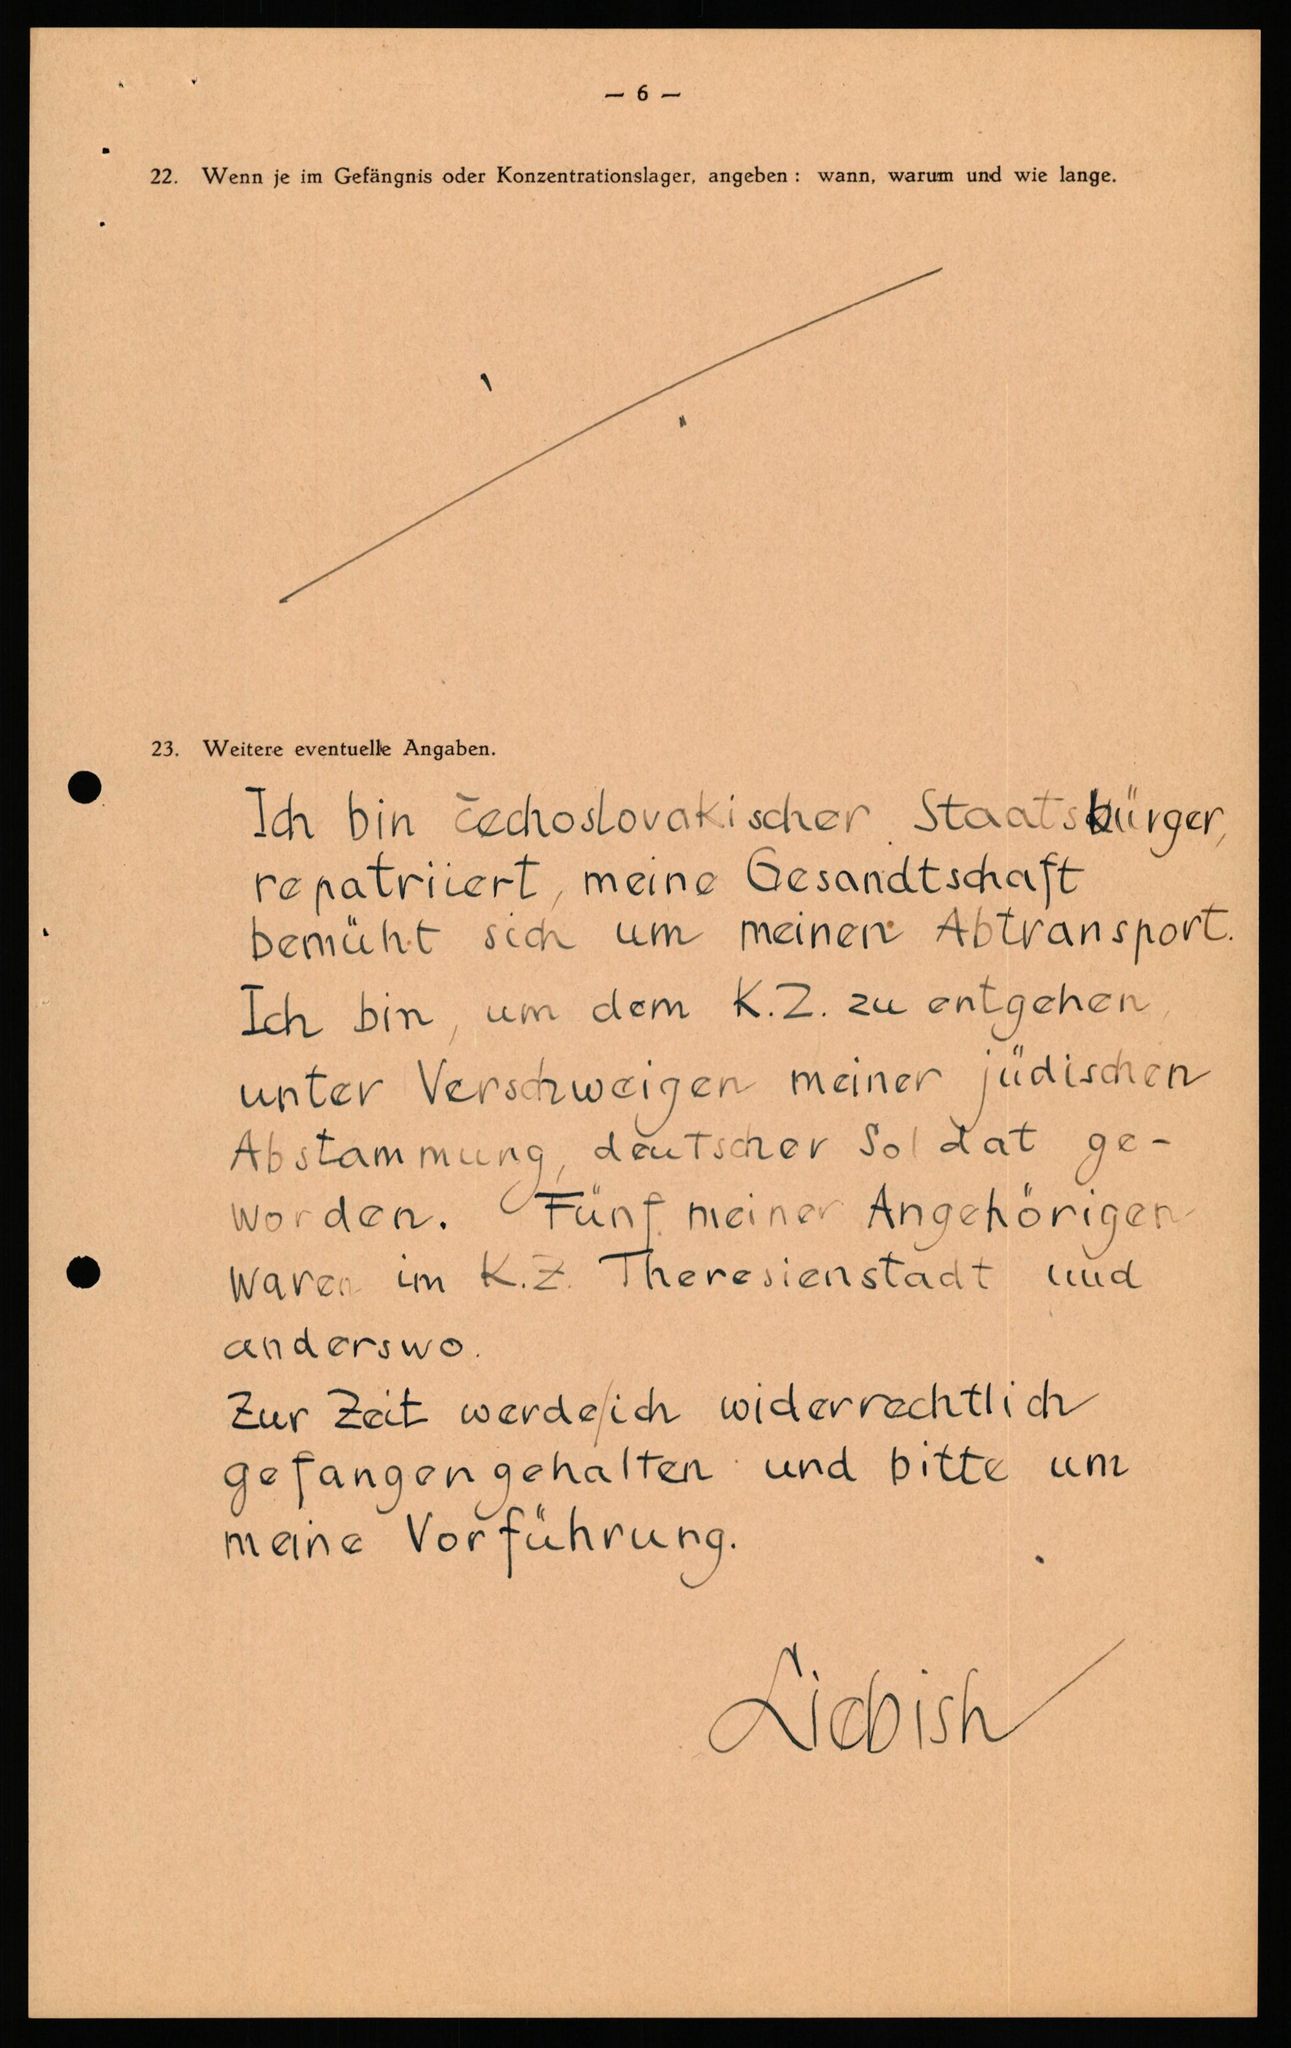 — 6 —
22. Wenn je im Gefängnis oder Konzentrationslager, angeben: wann, warum und wie lange.
23. Weitere eventuelle Angaben.
Ich bin čechoslovakischer Staatsbürger,
repatriiert, meine Gesandtschaft
bemüht sich um meinen Abtransport.
Ich bin, um dem K.Z. zu entgehen,
unter Verschweigen meiner jüdischen
Abstammung, deutscher Soldat ge-
worden. Fünf meiner Angehörigen
waren im K.Z. Theresienstadt und
anderswo.
Zur Zeit werde/ich widerrechtlich
gefangengehalten und bitte um
meine Vorführung.
Liebish